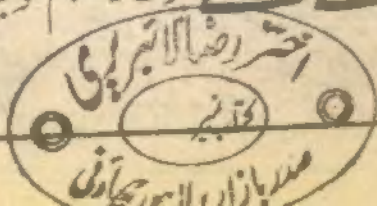 اختر رضا لائبریری
کتب نمبر
صدر بازار لاہور چھاؤنی